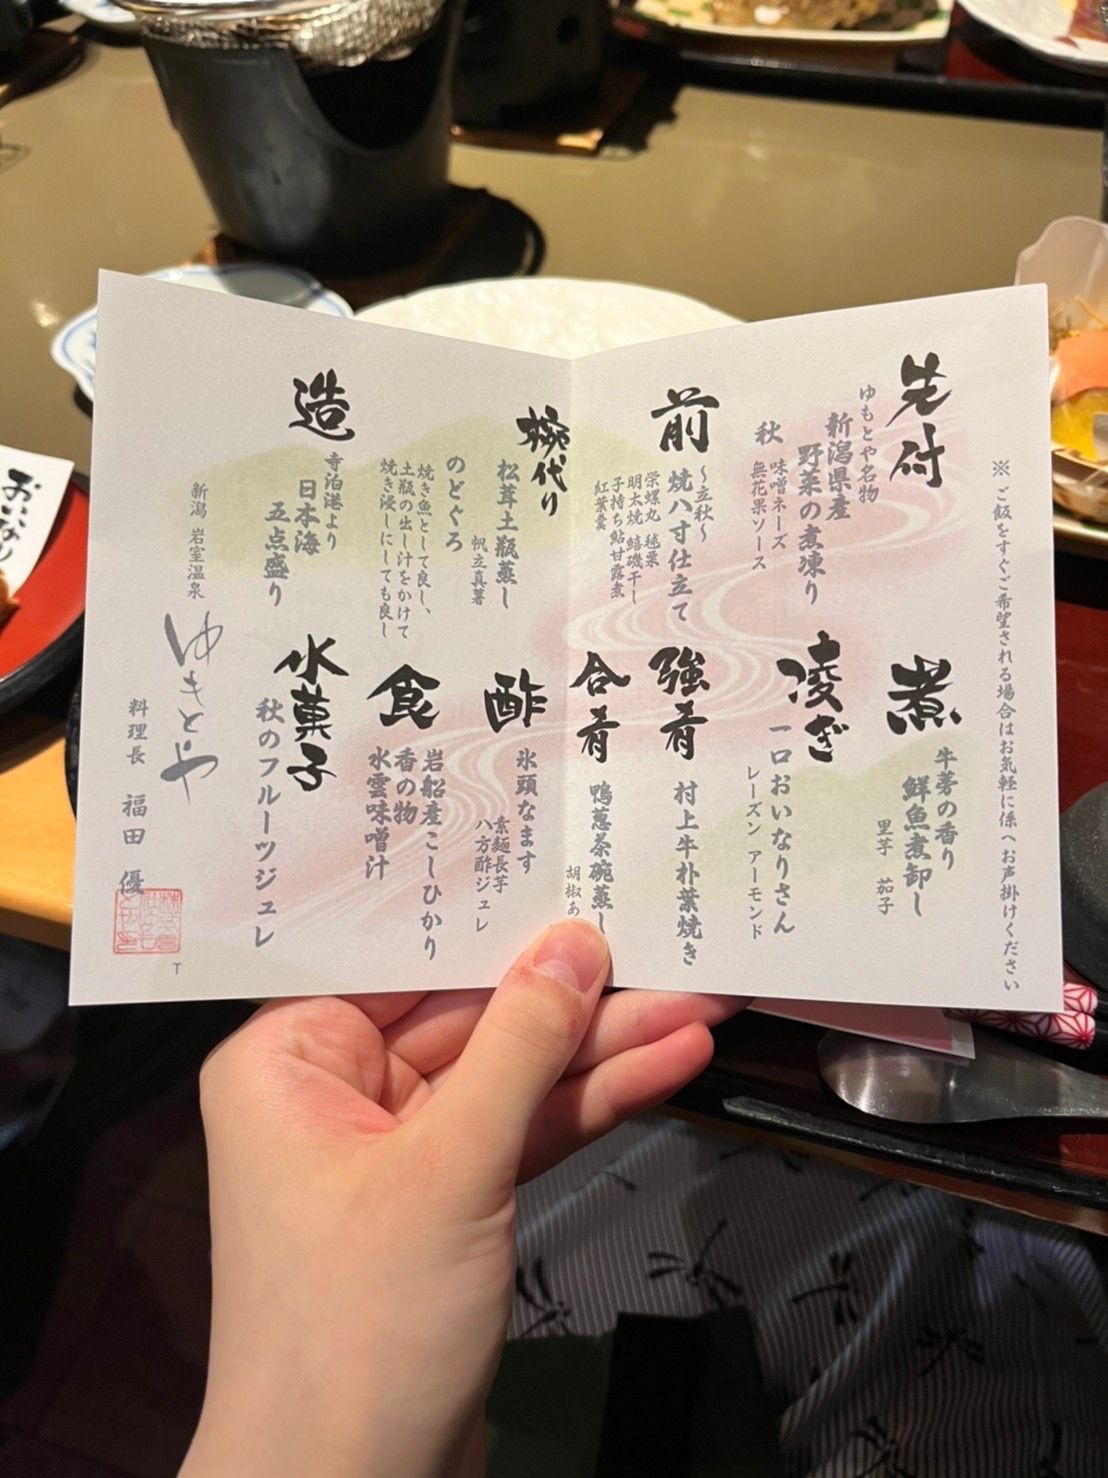 ※ ご飯をすぐご希望される場合はお気軽に係へお声掛けください
先付
ゆもとや名物
新潟県産
野菜の煮凍り
秋
味噌ネーズ
無花果ソース
前
～立秋～
焼八寸仕立て
栄螺丸 毬栗
明太焼 鱚磯干し
子持ち鮎甘露煮
紅葉麩
椀代り
松茸土瓶蒸し
帆立真薯
のどぐろ
焼き魚として良し、
土瓶の出し汁をかけて
焼き浸しにしても良し
造
寺泊港より
日本海
五点盛り
煮
牛蒡の香り
鮮魚煮卸し
里芋 茄子
凌ぎ
一口おいなりさん
レーズン アーモンド
強肴
村上牛朴葉焼き
合肴
鴨葱茶碗蒸し
胡椒あ
酢
氷頭なます
素麺長芋
八方酢ジュレ
食
岩船産こしひかり
香の物
水雲味噌汁
水菓子
秋のフルーツジュレ
新潟 岩室温泉
ゆもとや
料理長 福田 優
T
おいなり